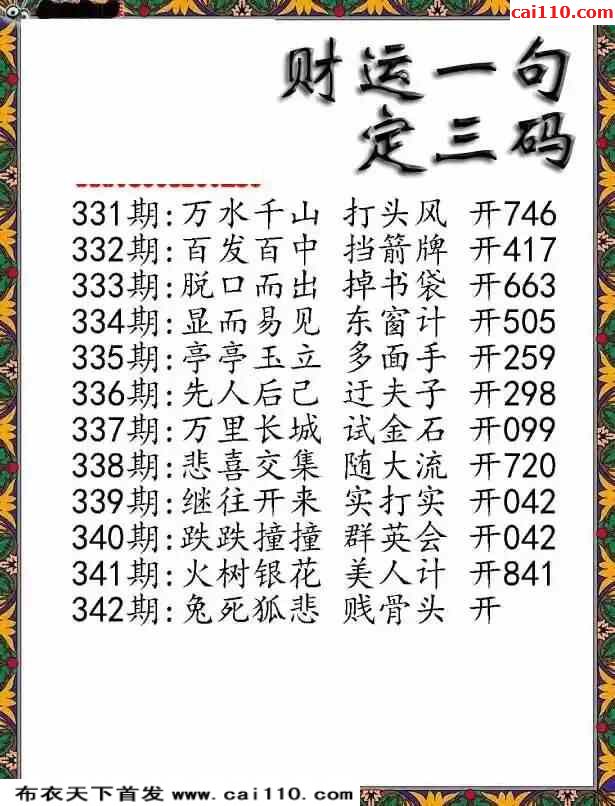 cai110.com
财运一句
定三码
331期:万水千山 打头风 开746
332期:百发百中 挡箭牌 开417
333期:脱口而出 掉书袋 开663
334期:显而易见 东窗计 开505
335期:亭亭玉立 多面手 开259
336期:先人后己 迂夫子 开298
337期:万里长城 试金石 开099
338期:悲喜交集 随大流 开720
339期:继往开来 实打实 开042
340期:跌跌撞撞 群英会 开042
341期:火树银花 美人计 开841
342期:兔死狐悲 贱骨头 开
布衣天下首发 www.cai110.com